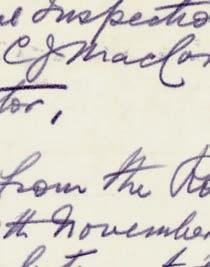 Inspectio
C J MacCor
tor,
from the Ro
th November